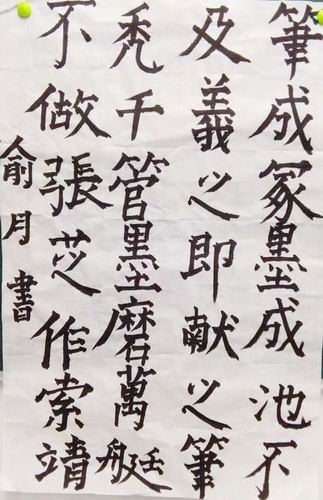 筆成冢墨成池不
及羲之即献之筆
禿千管墨磨萬艇
不做張芝作索靖
俞月書